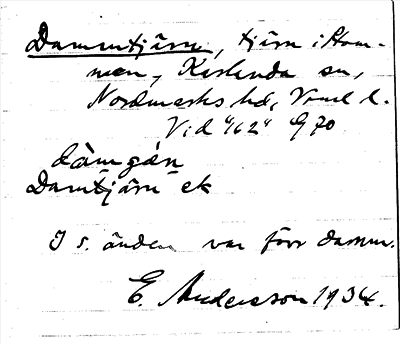 Dammtjärn, tjärn i Hom-
men, Karlanda sn,
Nordmarks hd, Vrml l.
Vid "162" G 70
dàmgǻn
Damtjärn ek
I s. änden var förr damm.
E. Andersson 1934.